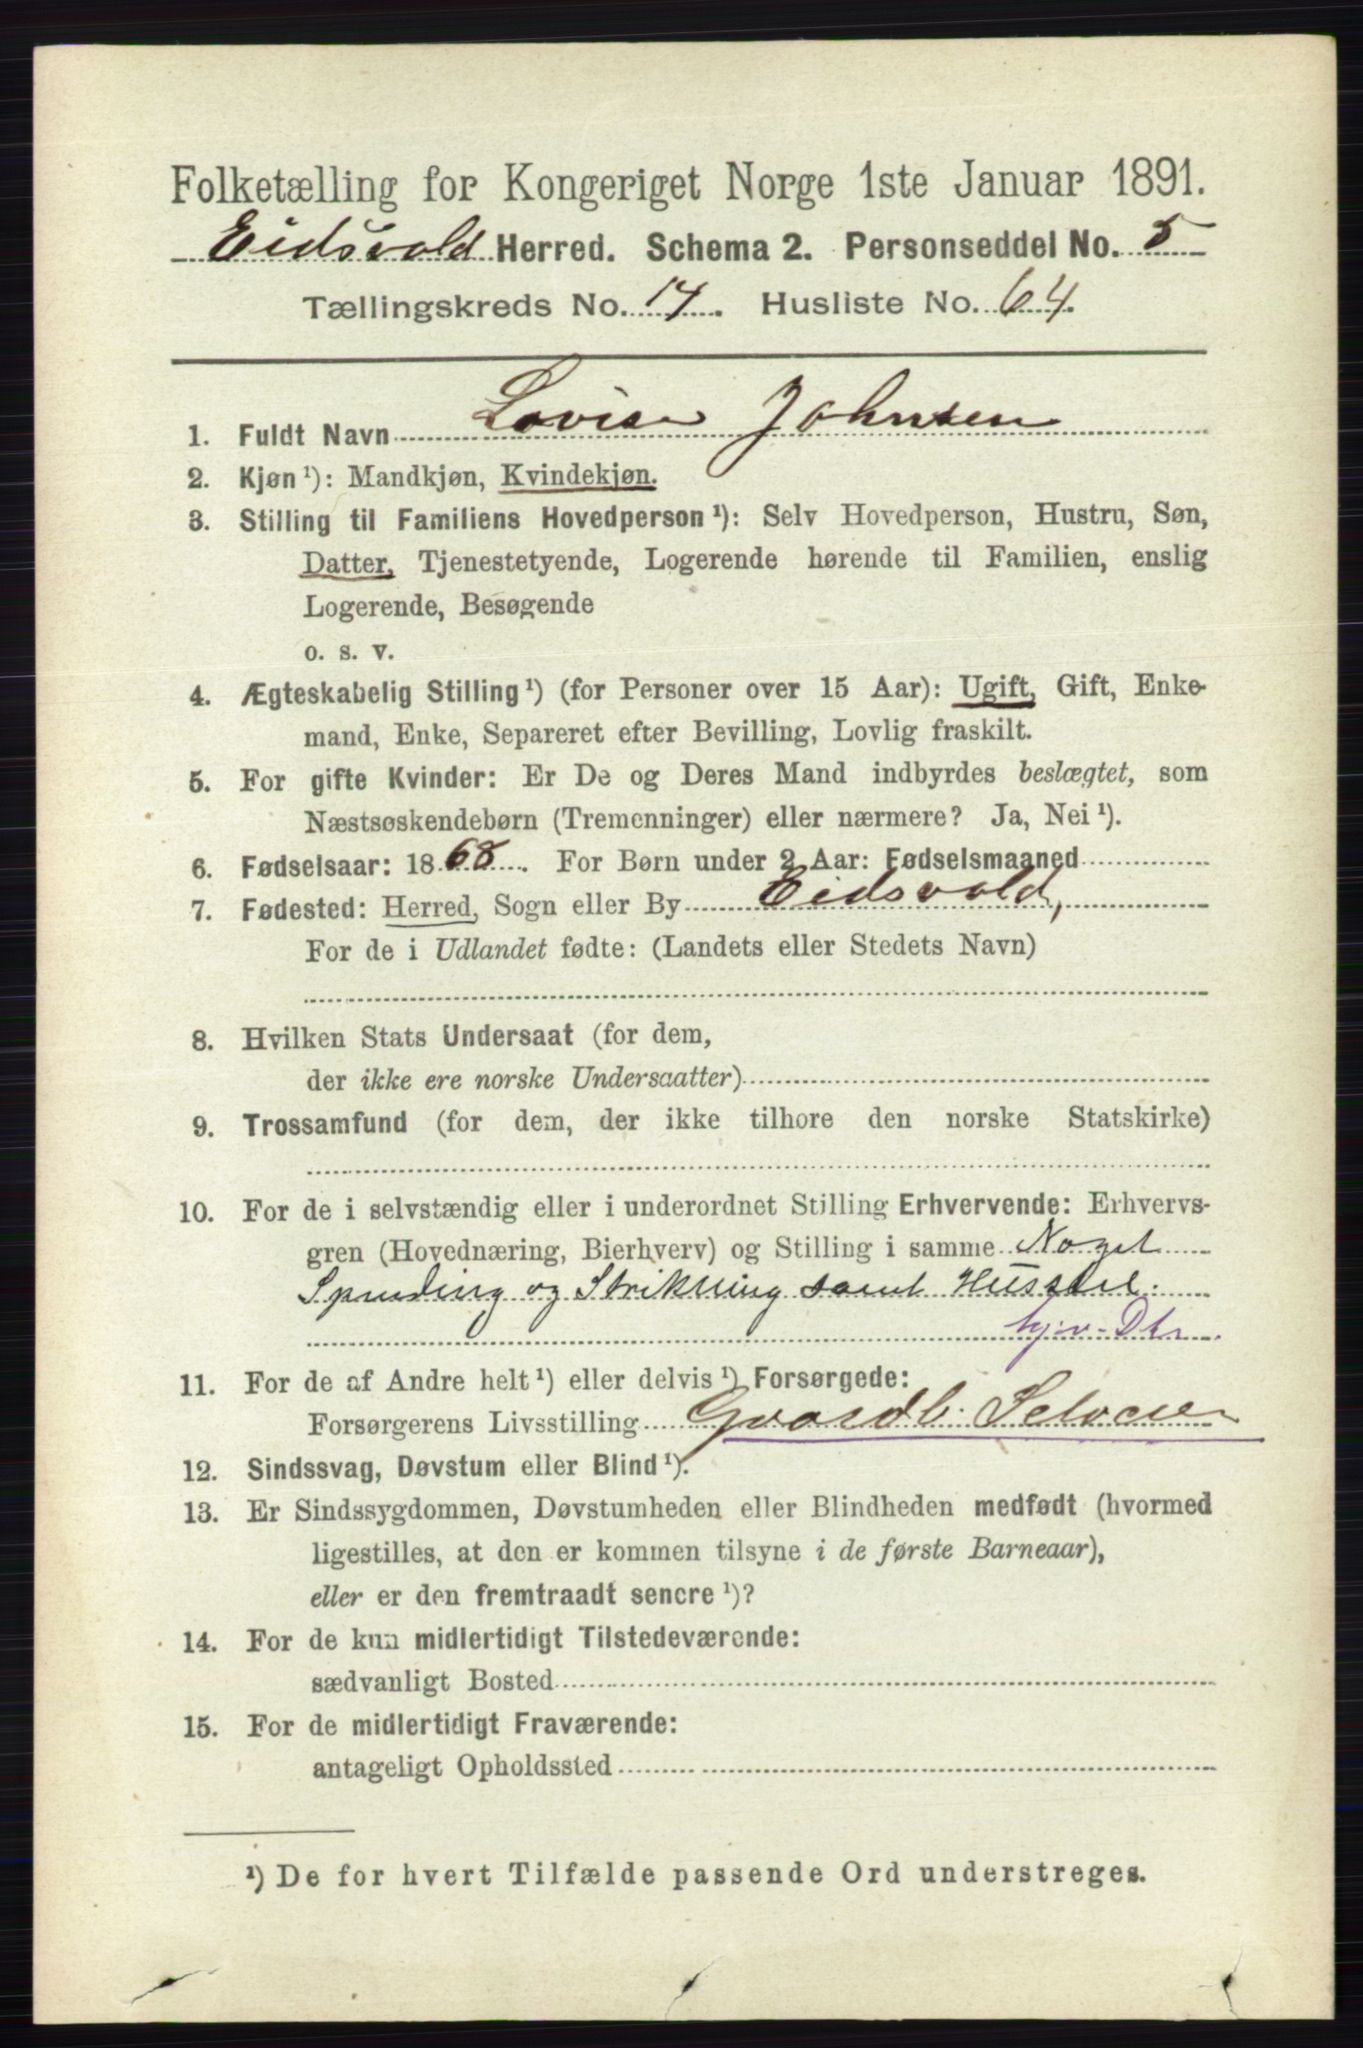 Folketælling for Kongeriget Norge 1ste Januar 1891.
Eidsvold Herred. Schema 2. Personseddel No. 5
Tællingskreds No. 14. Husliste No. 64.
1. Fuldt Navn Lovise Johnsen
2. Kjøn ¹): Mandkjøn, Kvindekjøn.
3. Stilling til Familiens Hovedperson ¹): Selv Hovedperson, Hustru, Søn,
Datter, Tjenestetyende, Logerende hørende til Familien, enslig
Logerende, Besøgende
o. s. v.
4. Ægteskabelig Stilling ¹) (for Personer over 15 Aar): Ugift, Gift, Enke-
mand, Enke, Separeret efter Bevilling, Lovlig fraskilt.
5. For gifte Kvinder: Er De og Deres Mand indbyrdes beslægtet, som
Næstsøskendebørn (Tremenninger) eller nærmere? Ja, Nei ¹).
6. Fødselsaar: 1868. For Børn under 2 Aar: Fødselsmaaned
7. Fødested: Herred, Sogn eller By Eidsvold,
For de i Udlandet fødte: (Landets eller Stedets Navn)
8. Hvilken Stats Undersaat (for dem,
der ikke ere norske Undersaatter)
9. Trossamfund (for dem, der ikke tilhøre den norske Statskirke)
10. For de i selvstændig eller i underordnet Stilling Erhvervende: Erhvervs-
gren (Hovednæring, Bierhverv) og Stilling i samme Noget
Spinding og Strikning samt Husstel.
hj.v. Dtr.
11. For de af Andre helt ¹) eller delvis ¹) Forsørgede:
Forsørgerens Livsstilling Gaardb. Seloeier
12. Sindssvag, Døvstum eller Blind ¹).
13. Er Sindssygdommen, Døvstumheden eller Blindheden medfødt (hvormed
ligestilles, at den er kommen tilsyne i de første Barneaar),
eller er den fremtraadt senere ¹)?
14. For de kun midlertidigt Tilstedeværende:
sædvanligt Bosted
15. For de midlertidigt Fraværende:
antageligt Opholdssted
¹) De for hvert Tilfælde passende Ord understreges.